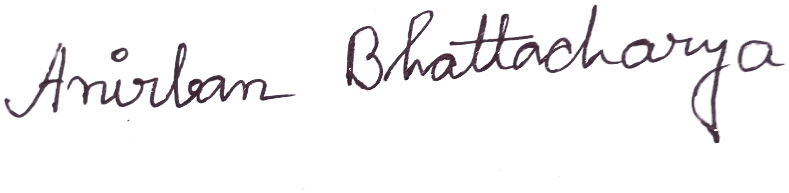 Anirban Bhattacharya